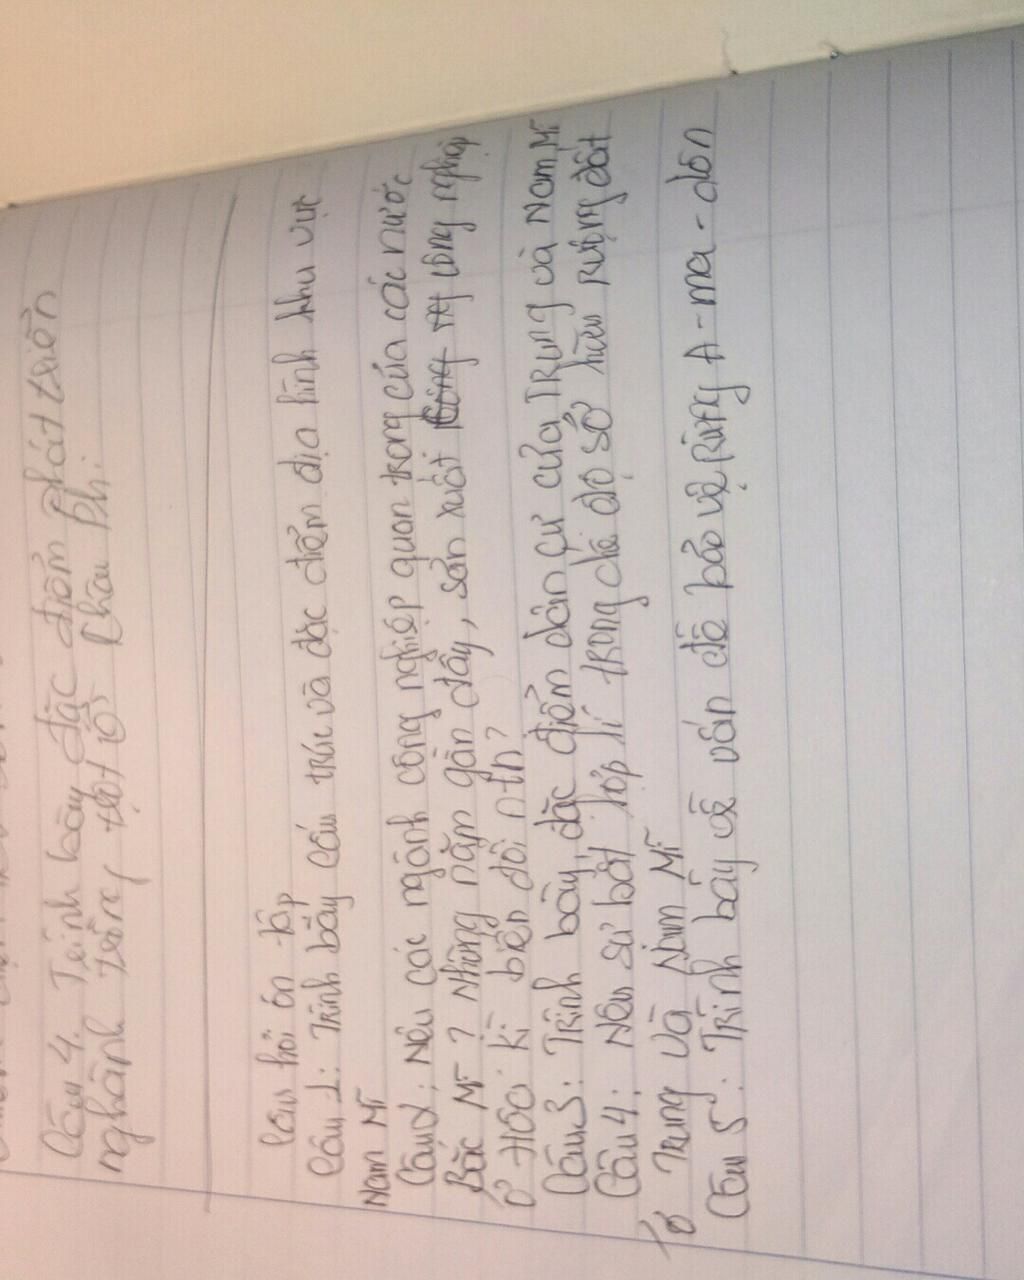 Câu 4. Trình bày đặc điểm phát triển
nghành trồng trọt ở Châu Phi
Câu hỏi ôn tập
Câu 1: Trình bày cấu trúc và đặc điểm địa hình khu vực
Nam Mĩ
Câu 2: Nêu các ngành công nghiệp quan trọng của các nước
Bắc Mĩ? Những năm gần đây, sản xuất công nghiệp
ở Hoa kì biến đổi ntn?
Câu 3: Trình bày đặc điểm dân cư của Trung và Nam Mĩ
Câu 4: Nêu sự bất hợp lí trong chế độ sở hữu ruộng đất
ở Trung và Nam Mĩ
Câu 5: Trình bày về vấn đề bảo vệ Rừng A-ma-dôn